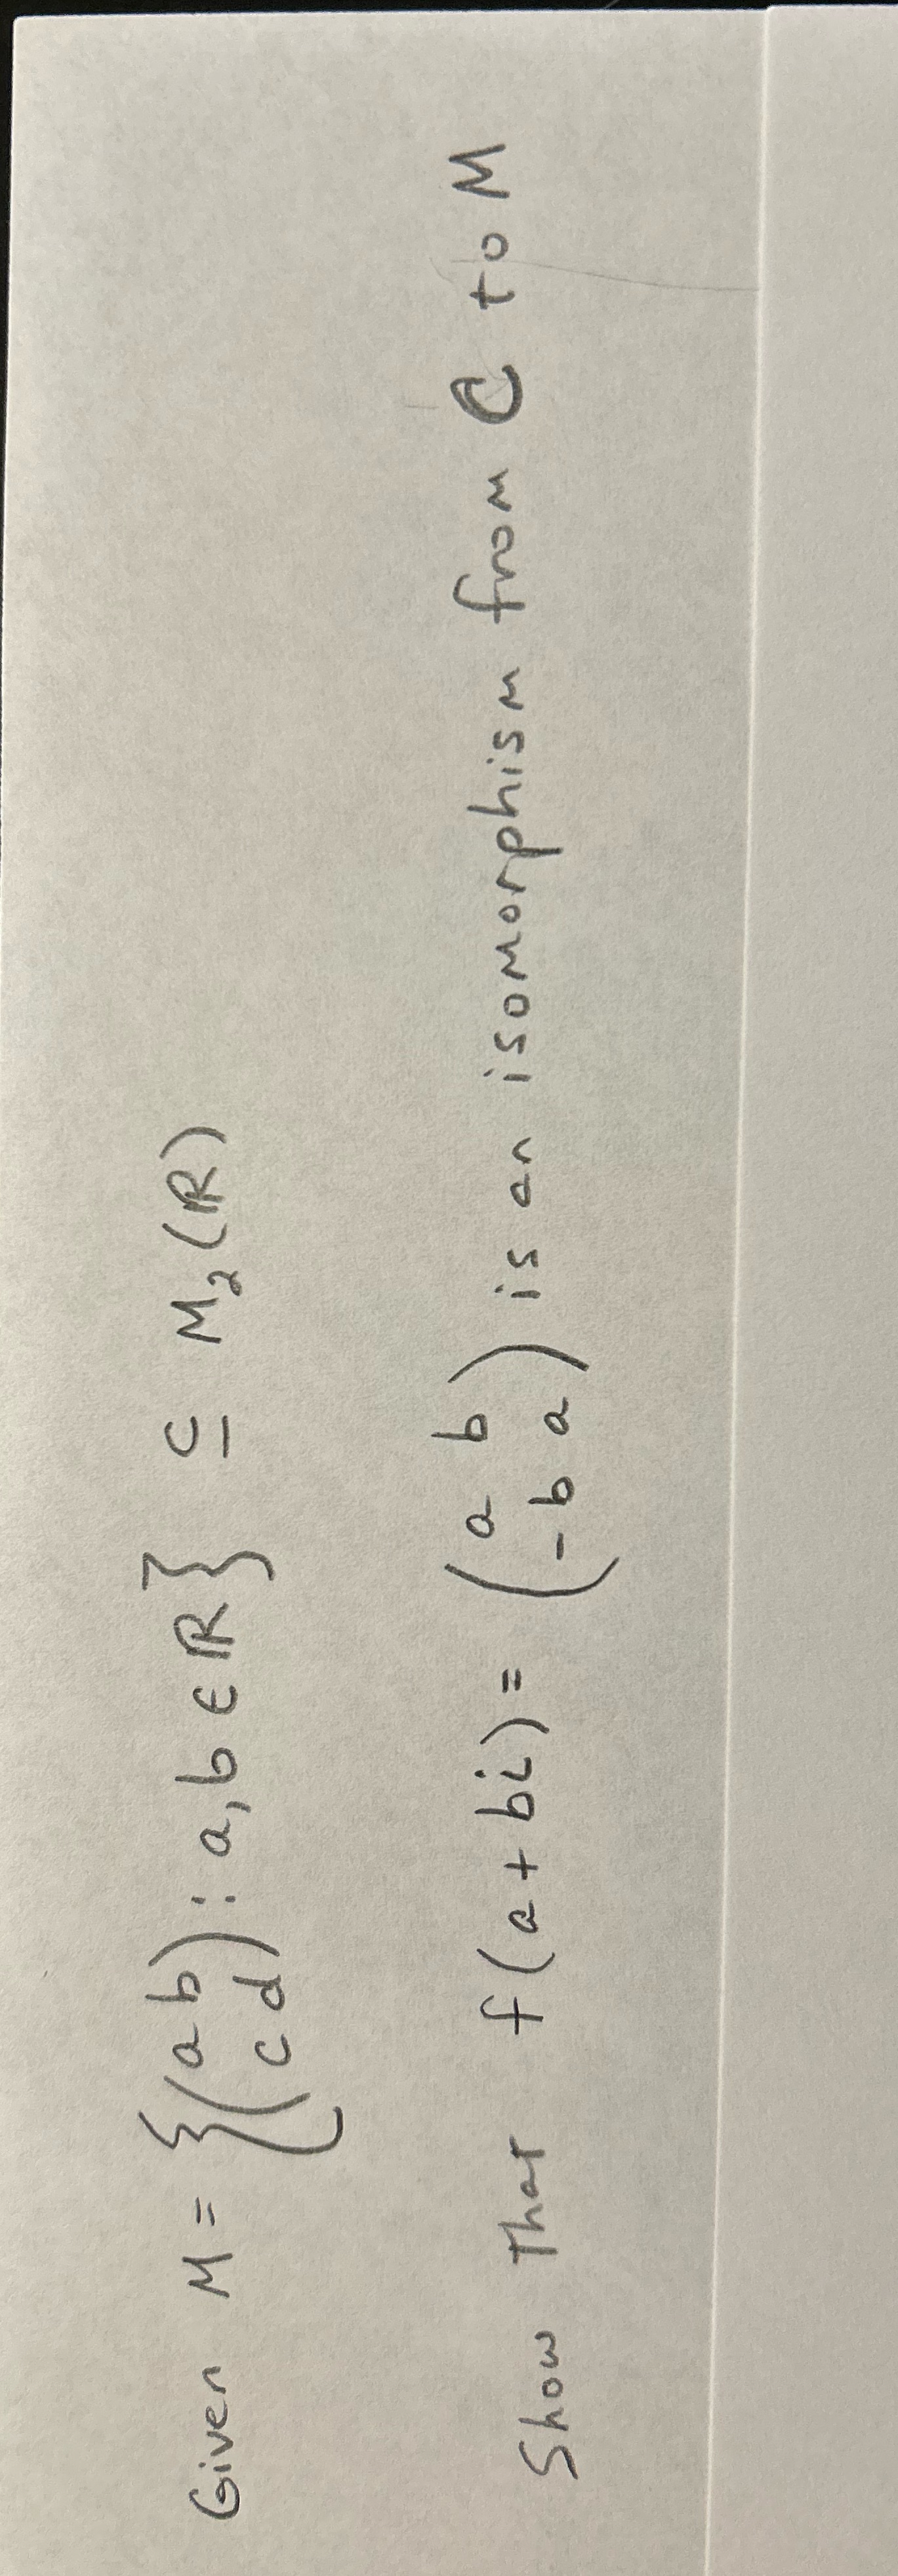 Given M = {(a b
c d) : a, b ∈ ℝ} ⊆ M₂(ℝ)
Show that f(a + bi) = (a b
-b a) is an isomorphism from ℂ to M